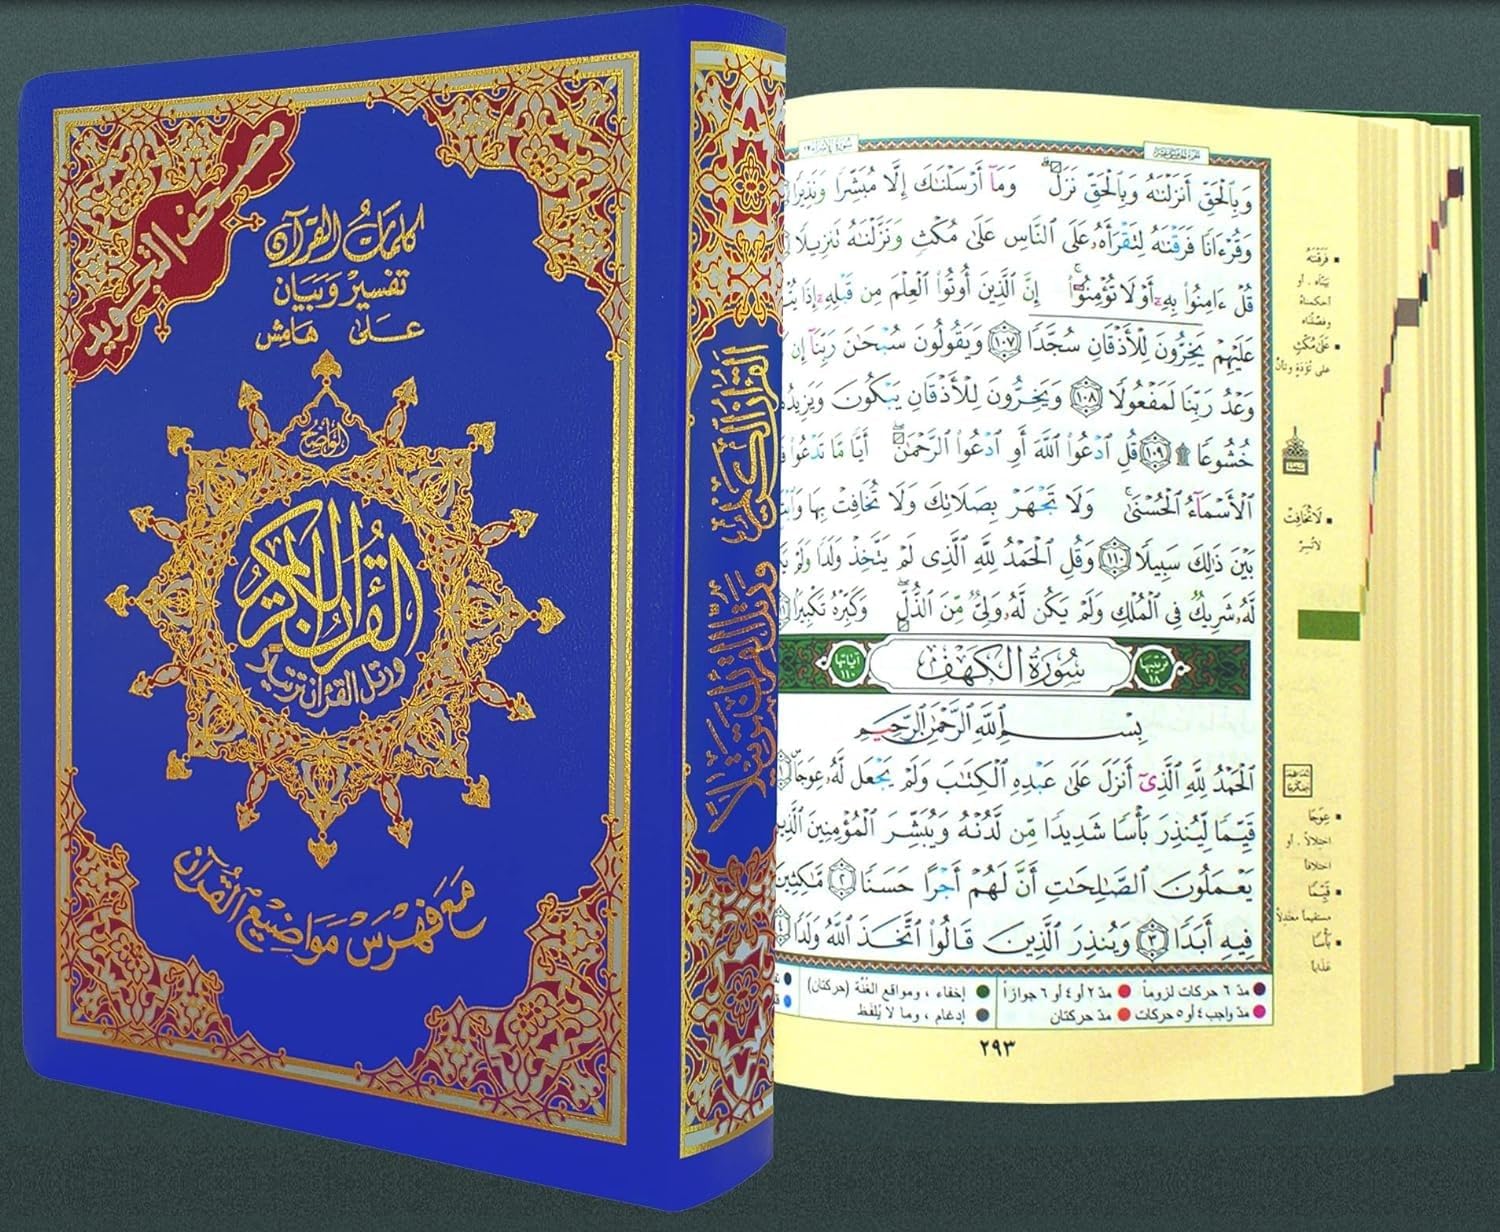 مصحف التجويد
كلمات القرآن
تفسير وبيان
على هامش
الواضح
القرآن الكريم
ورتل القرآن ترتيلا
مع فهرس مواضيع القرآن
القرآن الكريم
ورتل القرآن ترتيلا
وَبِٱلْحَقِّ أَنزَلْنَٰهُ وَبِٱلْحَقِّ نَزَلَ وَمَآ أَرْسَلْنَٰكَ إِلَّا مُبَشِّرًا وَنَذِيرًا
وَقُرْءَانًا فَرَقْنَٰهُ لِتَقْرَأَهُۥ عَلَى ٱلنَّاسِ عَلَىٰ مُكْثٍ وَنَزَّلْنَٰهُ تَنزِيلًا
قُلْ ءَامِنُوا۟ بِهِۦٓ أَوْ لَا تُؤْمِنُوٓا۟ إِنَّ ٱلَّذِينَ أُوتُوا۟ ٱلْعِلْمَ مِن قَبْلِهِۦٓ إِذَا
عَلَيْهِمْ يَخِرُّونَ لِلْأَذْقَانِ سُجَّدًا ١٠٧ وَيَقُولُونَ سُبْحَٰنَ رَبِّنَآ إِن
وَعْدُ رَبِّنَا لَمَفْعُولًا ١٠٨ وَيَخِرُّونَ لِلْأَذْقَانِ يَبْكُونَ وَيَزِيدُهُ
خُشُوعًا ۩ ١٠٩ قُلِ ٱدْعُوا۟ ٱللَّهَ أَوِ ٱدْعُوا۟ ٱلرَّحْمَٰنَ أَيًّا مَّا تَدْعُوا۟
ٱلْأَسْمَآءُ ٱلْحُسْنَىٰ وَلَا تَجْهَرْ بِصَلَاتِكَ وَلَا تُخَافِتْ بِهَا
بَيْنَ ذَٰلِكَ سَبِيلًا ١١٠ وَقُلِ ٱلْحَمْدُ لِلَّهِ ٱلَّذِى لَمْ يَتَّخِذْ وَلَدًا وَلَمْ
لَّهُۥ شَرِيكٌ فِى ٱلْمُلْكِ وَلَمْ يَكُن لَّهُۥ وَلِىٌّ مِّنَ ٱلذُّلِّ وَكَبِّرْهُ تَكْبِيرًۢا
ترتيبها ١٨ سُورَةُ الكَهْف آياتها ١١٠
بِسْمِ ٱللَّهِ ٱلرَّحْمَٰنِ ٱلرَّحِيمِ
ٱلْحَمْدُ لِلَّهِ ٱلَّذِىٓ أَنزَلَ عَلَىٰ عَبْدِهِ ٱلْكِتَٰبَ وَلَمْ يَجْعَل لَّهُۥ عِوَجَا ١
قَيِّمًا لِّيُنذِرَ بَأْسًا شَدِيدًا مِّن لَّدُنْهُ وَيُبَشِّرَ ٱلْمُؤْمِنِينَ ٱلَّذِينَ
يَعْمَلُونَ ٱلصَّٰلِحَٰتِ أَنَّ لَهُمْ أَجْرًا حَسَنًا ٢ مَّٰكِثِينَ
فِيهِ أَبَدًا ٣ وَيُنذِرَ ٱلَّذِينَ قَالُوا۟ ٱتَّخَذَ ٱللَّهُ وَلَدًا ٤
فَرَقْنَاهُ
بيّناه . أو
أحكمناه
وفصّلناه
عَلَى مُكْثٍ
على تُؤَدَةٍ وتأنّ
لَا تُخَافِتْ
لا تُسِرّ
عِوَجًا
اختلالاً . أو
اختلافاً
قَيِّمًا
مستقيماً معتدلاً
بَأْسًا
عَذاباً
مدّ ٦ حركات لزوماً مدّ ٢ أو ٤ أو ٦ جوازاً إخفاء ، ومواقع الغُنَّة (حركتان)
مدّ واجب ٤ أو ٥ حركات مدّ حركتان إدغام ، وما لا يُلفَظ
٢٩٣